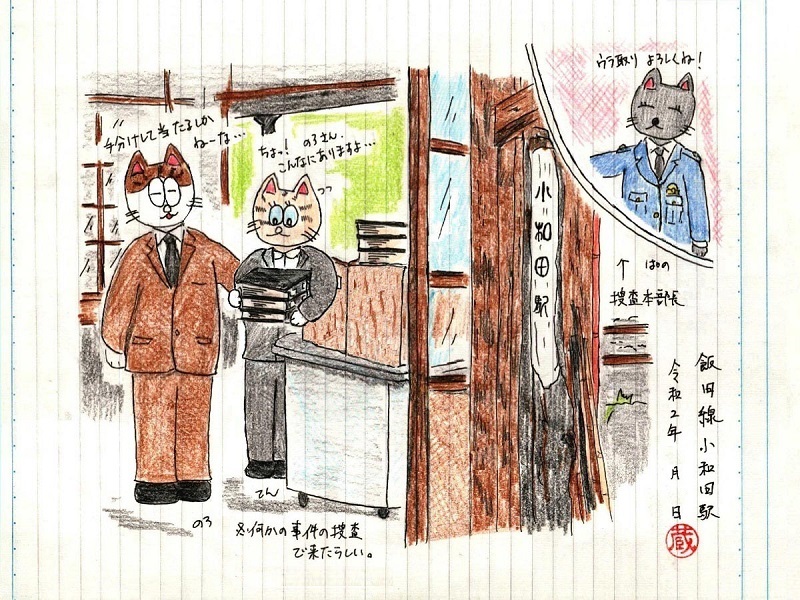 ウラ取り よろしくね!
手分けして当たるしか
ねーな…
ちょっ! のろさん、
こんなにありますよ…
小和田駅
↑ ぱの
捜査本部長
飯田線 小和田駅
令和2年 月 日
蔵
のろ
てん
※何かの事件の捜査
で来たらしい。